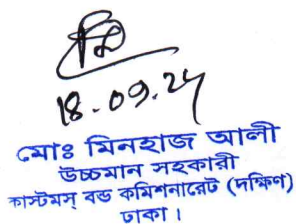 18.09.24
মোঃ মিনহাজ আলী
উচ্চমান সহকারী
কাস্টমস্ বন্ড কমিশনারেট (দক্ষিণ)
ঢাকা।